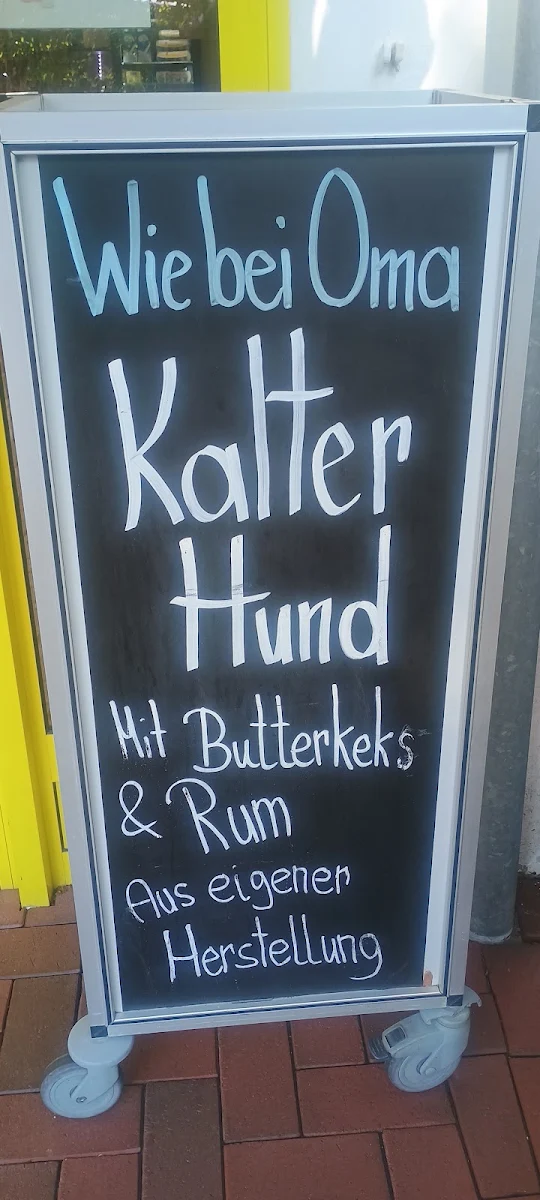 Wie bei Oma
Kalter
Hund
Mit Butterkeks
& Rum
Aus eigener
Herstellung